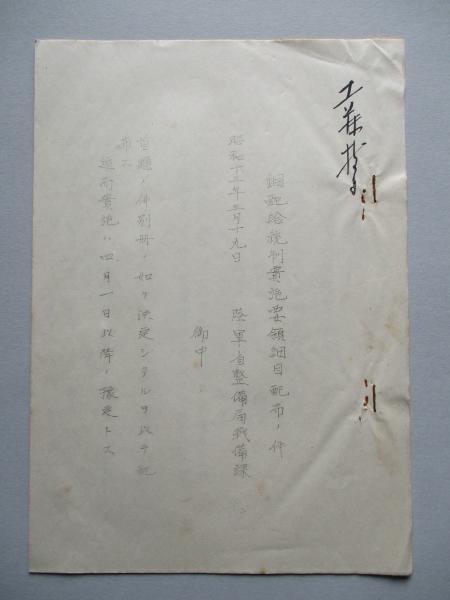 銅配給統制實施要領細目配布ノ件
昭和十三年三月十九日 陸軍省整備局戰備課
御中
首題ノ件別冊ノ如ク決定シタルヲ以テ配
布ス
追而實施ハ四月一日以降ノ豫定トス